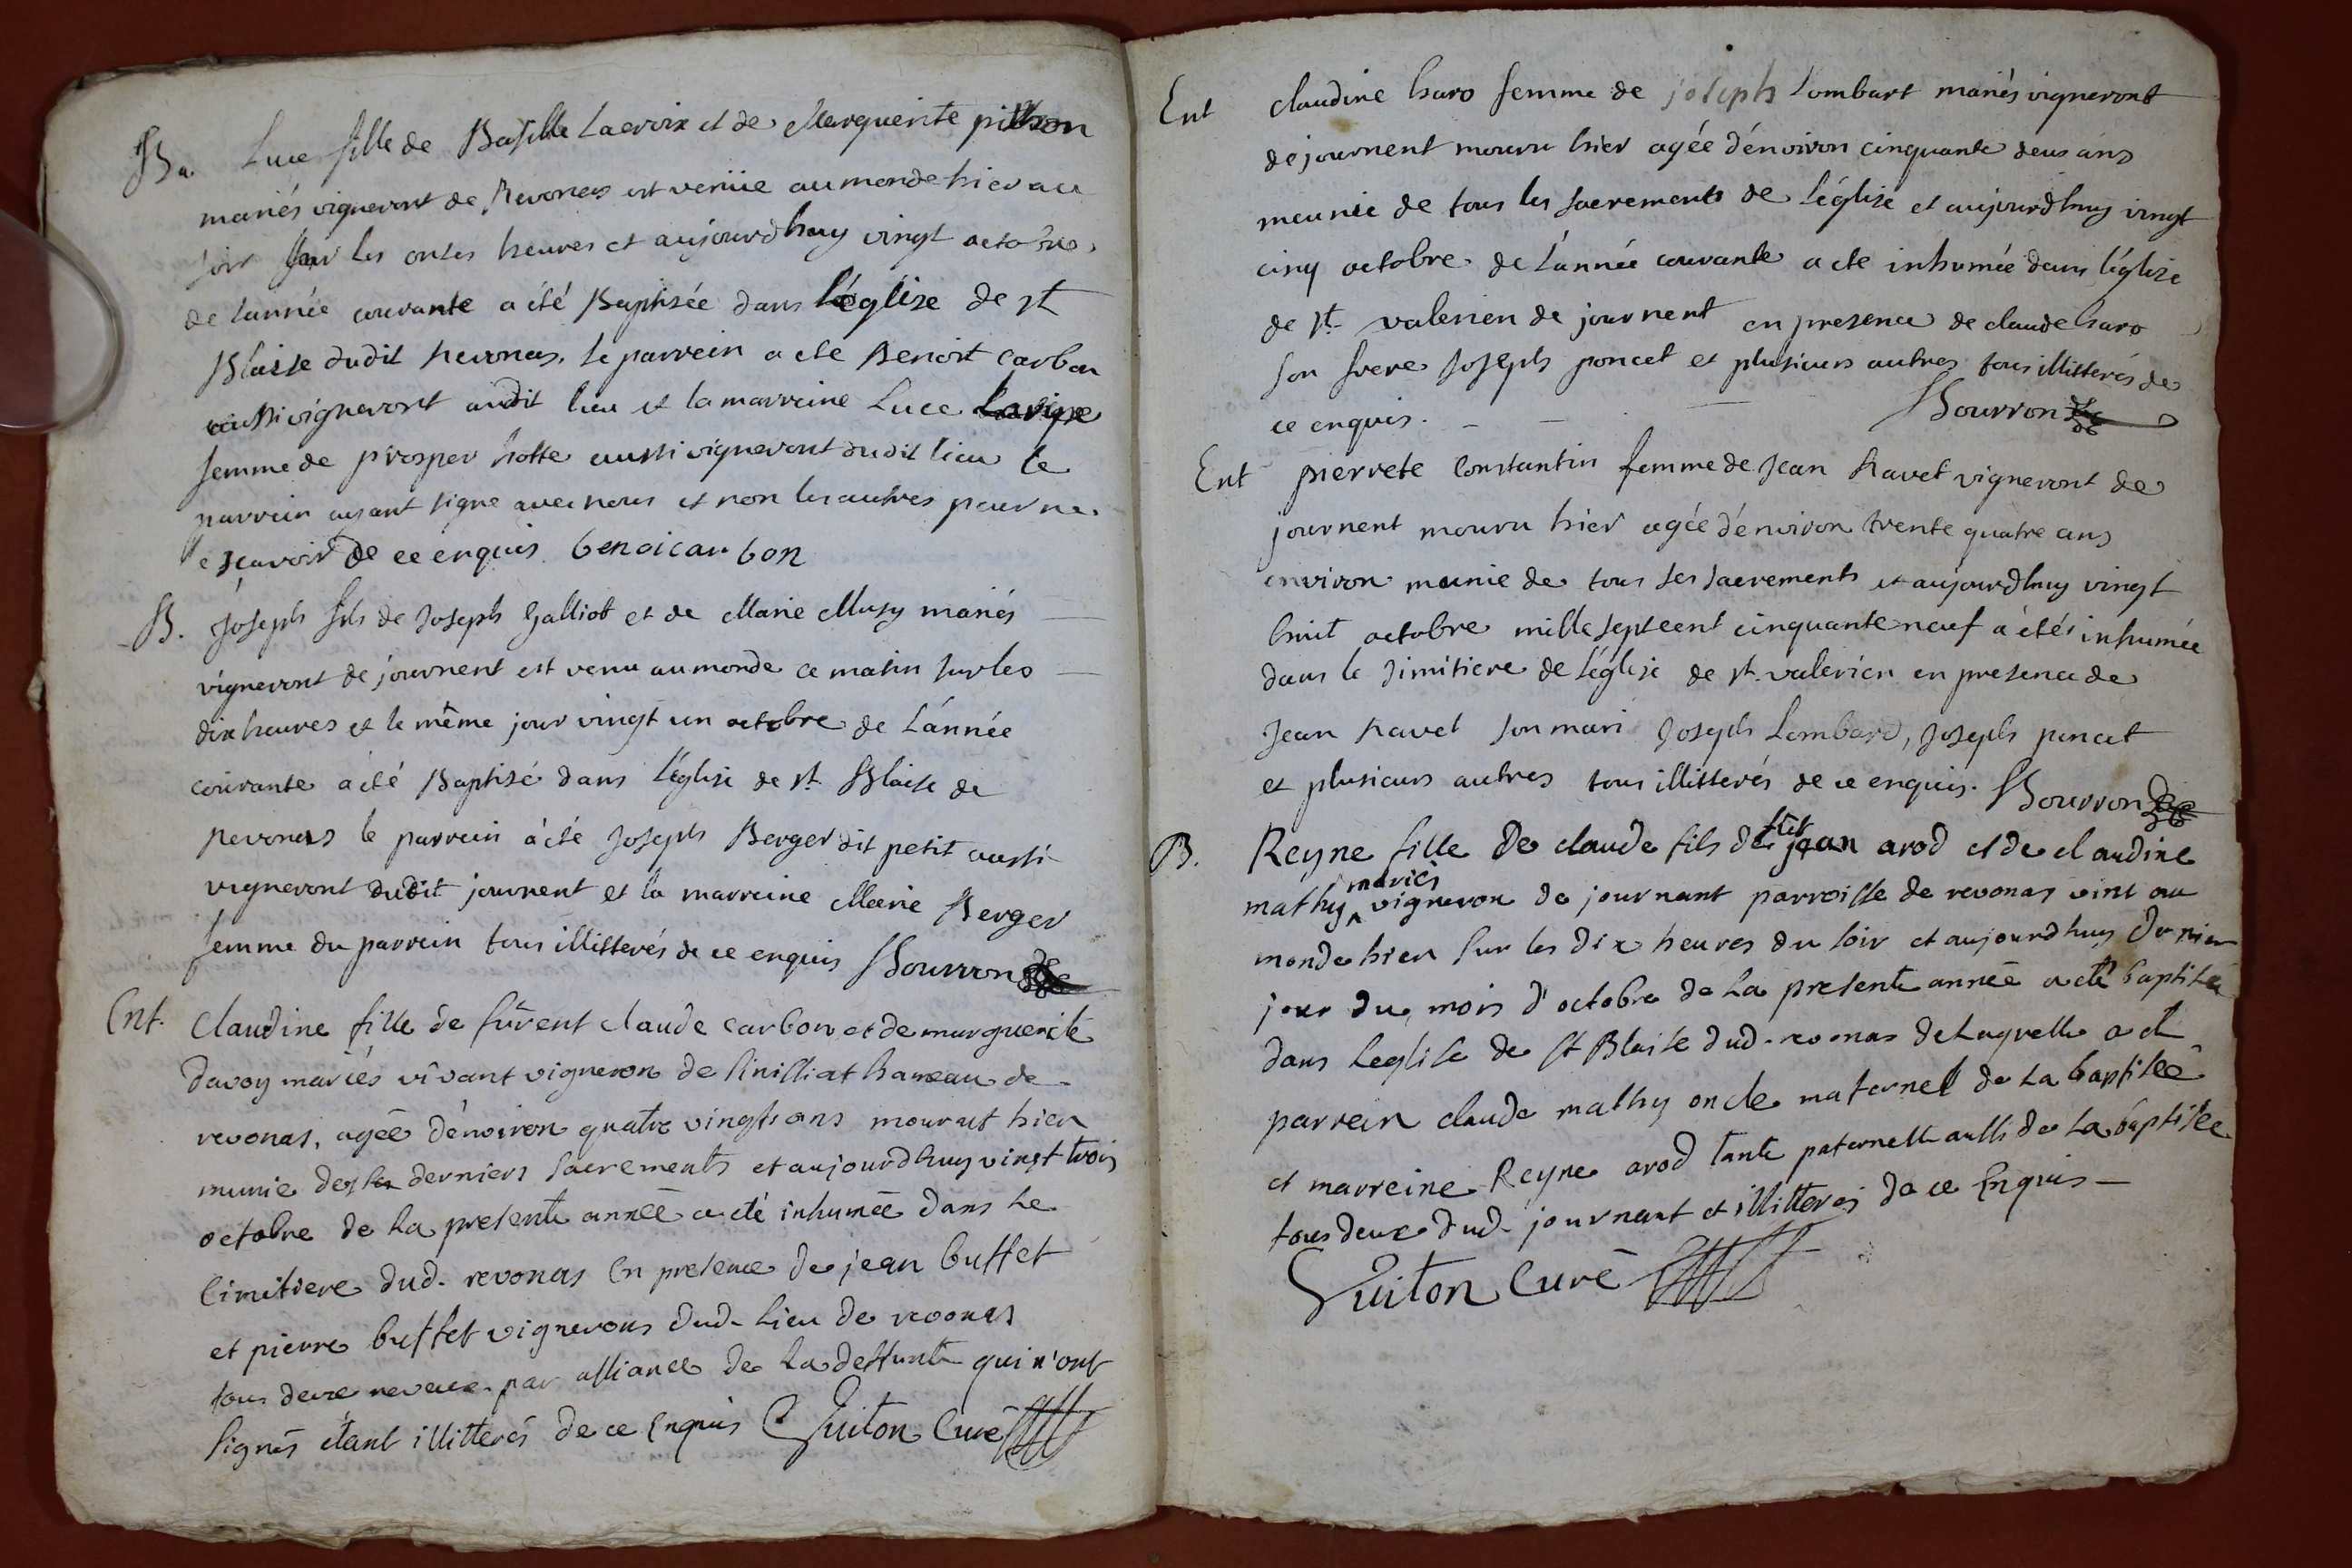 Ba. Luce fille de Basille Lacroix et de Marguerite pithion
mariés vigneront de Revonas est veniie au monde hier au
soir sur les onses heures et aujourdhuy vingt octobre
de lannée courante a été Baptisée dans l'église de st
Blaise dudit revonas, le parrein a ete Benoit Carbon
aussi vigneront audit lieu et la marreine Luce Lavigne
femme de prosper hotte aussi vigneront dudit lieu le
parrein ayant signe avec nous et non les autres pour ne
le sçavoir de ce enquis benoicarbon
B. Joseph fils de Joseph Galliot et de Marie Musy mariés
vigneront de journent est venu au monde ce matin sur les
dix heures et le même jour vingt un octobre de L'année
courante a été Baptisé dans l'église de st Blaise de
revonas le parrein a été Joseph Berger dit petit aussi
vigneront dudit journent et la marreine Marie Berger
femme du parrein tous illitterés de ce enquis Bourron
Ent. Claudine fille de fûrent claude carbon et de marguerite
davoy mariés vivant vigneron de Sinissiat hameau de
revonas, agée d'environ quatre vingts ans mourut hier
munie des derniers sacrements et aujourdhuy vingt trois
octobre de La presente année a eté inhumée dans Le
Cimitiere dud. revonas En presence de jean buffet
et pierre buffet vignerons dud. lieu de revonas
tous deux neveux par alliance de La deffunte qui n'ont
signés étant illitterés de ce Enquis Guiton Curé
Ent Claudine haro femme de joseph Lombart mariés vigneront
de journent mouru hier agée d'environ cinquante deux ans
meunie de tous les sacrements de l'église et aujourdhuy vingt
cinq octobre de L'année courante a ete inhumée dans l'église
de st valerien de journent en presence de claude haro
son frere Joseph poncet et plusieurs autres tous illitterés de
ce enquis. Bourron
Ent pierrete Constantin femme de Jean Ravet vigneront de
journent mouru hier agée d'environ trente quatre ans
environ meunie de tous ses sacrements et aujourdhuy vingt
huit octobre mille septcent cinquante neuf a étés inhumée
dans le simitiere de l'église de st. valerien en presence de
Jean Ravet son mari Joseph Lombard, Joseph poncet
et plusieurs autres tous illitterés de ce enquis. Bourron
B. Reyne fille de claude fils de fut jean arod et de claudine
mathy mariés vigneron de journant parroisse de revonas vint au
monde hier sur les dix heures du soir et aujourdhuy dernier
jour du mois d'octobre de La presente année a eté baptisée
dans Leglise de St Blaise dud. revonas de Laquelle a et
parrein claude mathy oncle maternel de La baptisée
et marreine Reyne arod tante paternelle aussi de La baptisée
tous deux dud. journant et illitterés de ce Enquis
Guiton Curé